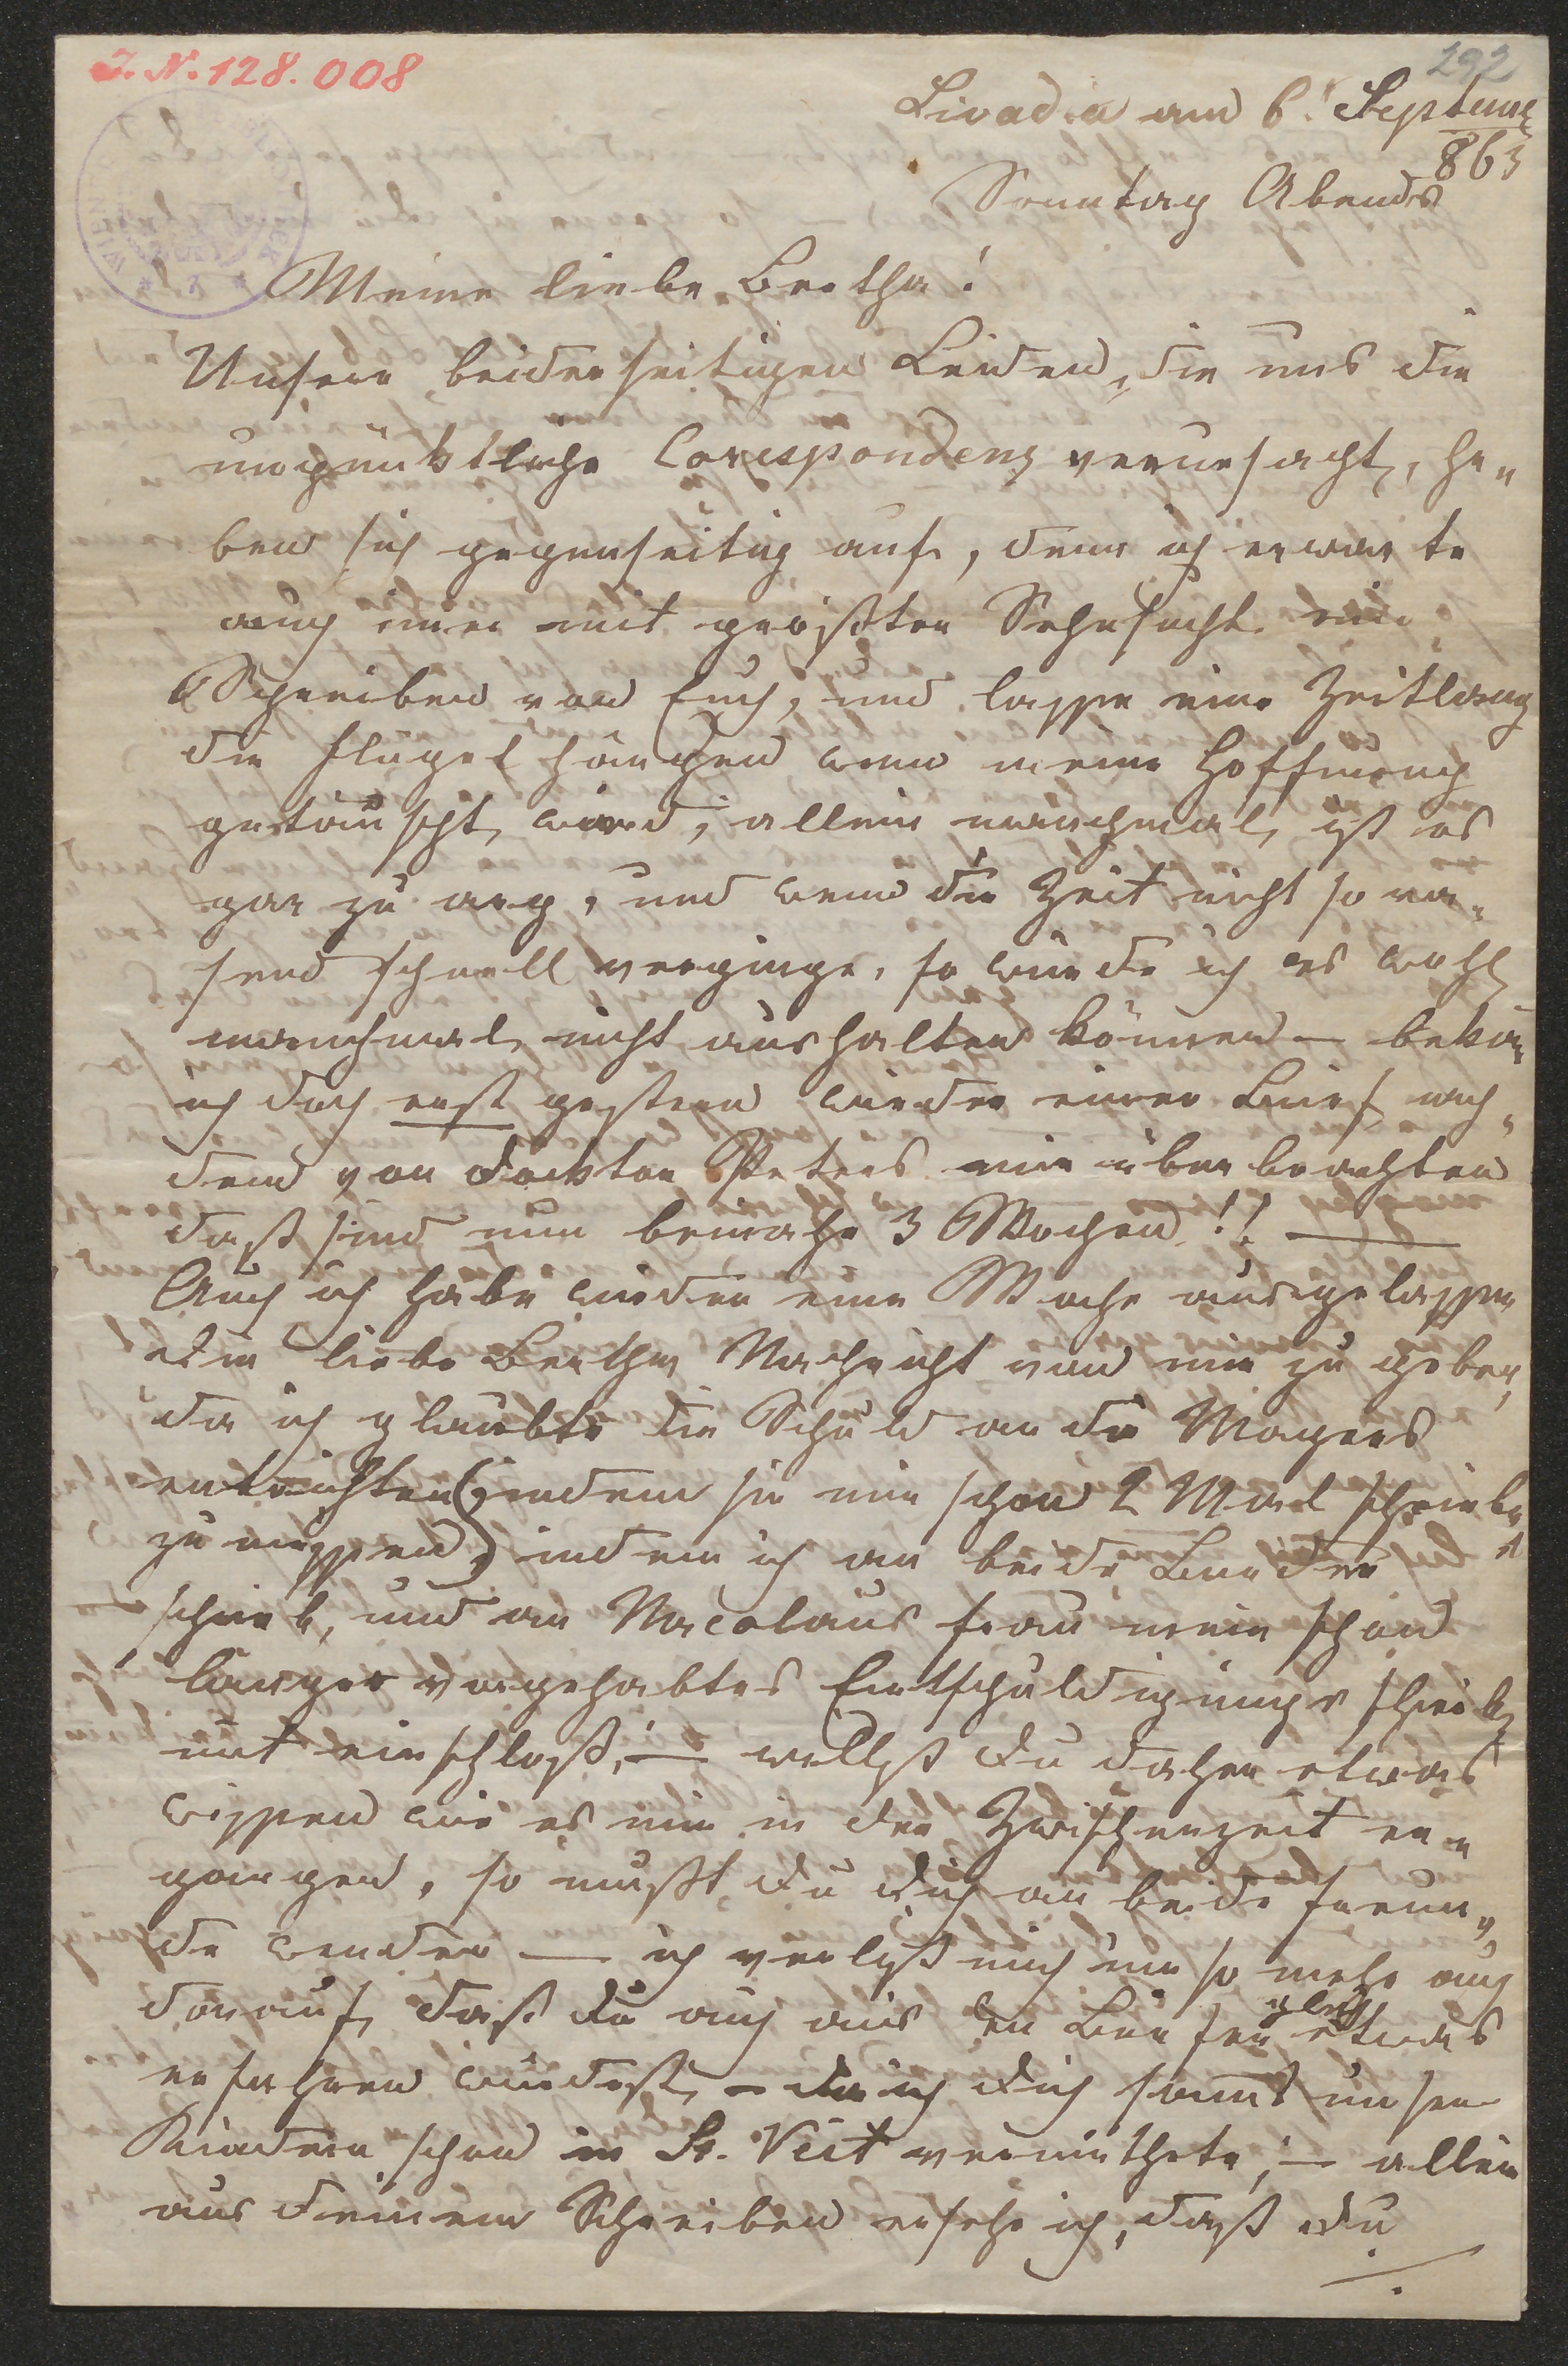 J. N. 128.008
292
Livadia am 6t Septemb
863
Sonntag Abends
Meine liebe Bertha!
Unsere beiderseitigen Leiden, die uns die
unpünktliche Corespondenz verursacht, he„
ben sich gegenseitig auf, denn ich erwarte
auch immer mit größter Sehnsucht ein
Schreiben von Euch, und lasse eine Zeitlang
die Flügel hängen wenn meine Hoffnung
getäuscht wird, allein manchmal ist es
gar zu arg, und wenn die Zeit nicht so ra„
send schnell verginge, so würde ich es wohl
manchmal nicht aushalten können – bekam
ich doch erst gestern wieder einen Brief nach
dem von Docktor Peters mir überbrachten
daß sind nun beinahe 3 Wochen!! —
Auch ich habe wieder eine Woche ausgelassen
Dir liebe Bertha Nachricht von mir zu geben,
da ich glaubte die Schuld an die Mayers
entrichten (indem sie mir schon 2 Mal schrieben
zu müssen) indem ich an beide Brüder
schrieb, und an Nicolaus Frau mein schon
länger vorgehabtes Entschuldigungs schreiben
mit einschloß, – willst Du daher etwas
wissen wie es mir in der Zwischenzeit er„
gangen, so mußt Du Dich an beide Freun„
de wenden — ich verließ mich um so mehr auch
darauf, daß Du auch aus den Briefen gleich etwas
erfahren würdest, – da ich Dich sammt unsern
Kindern schon in St. Veit vermuthete, – allein
aus Deinem Schreiben ersehe ich, daß Du
./.